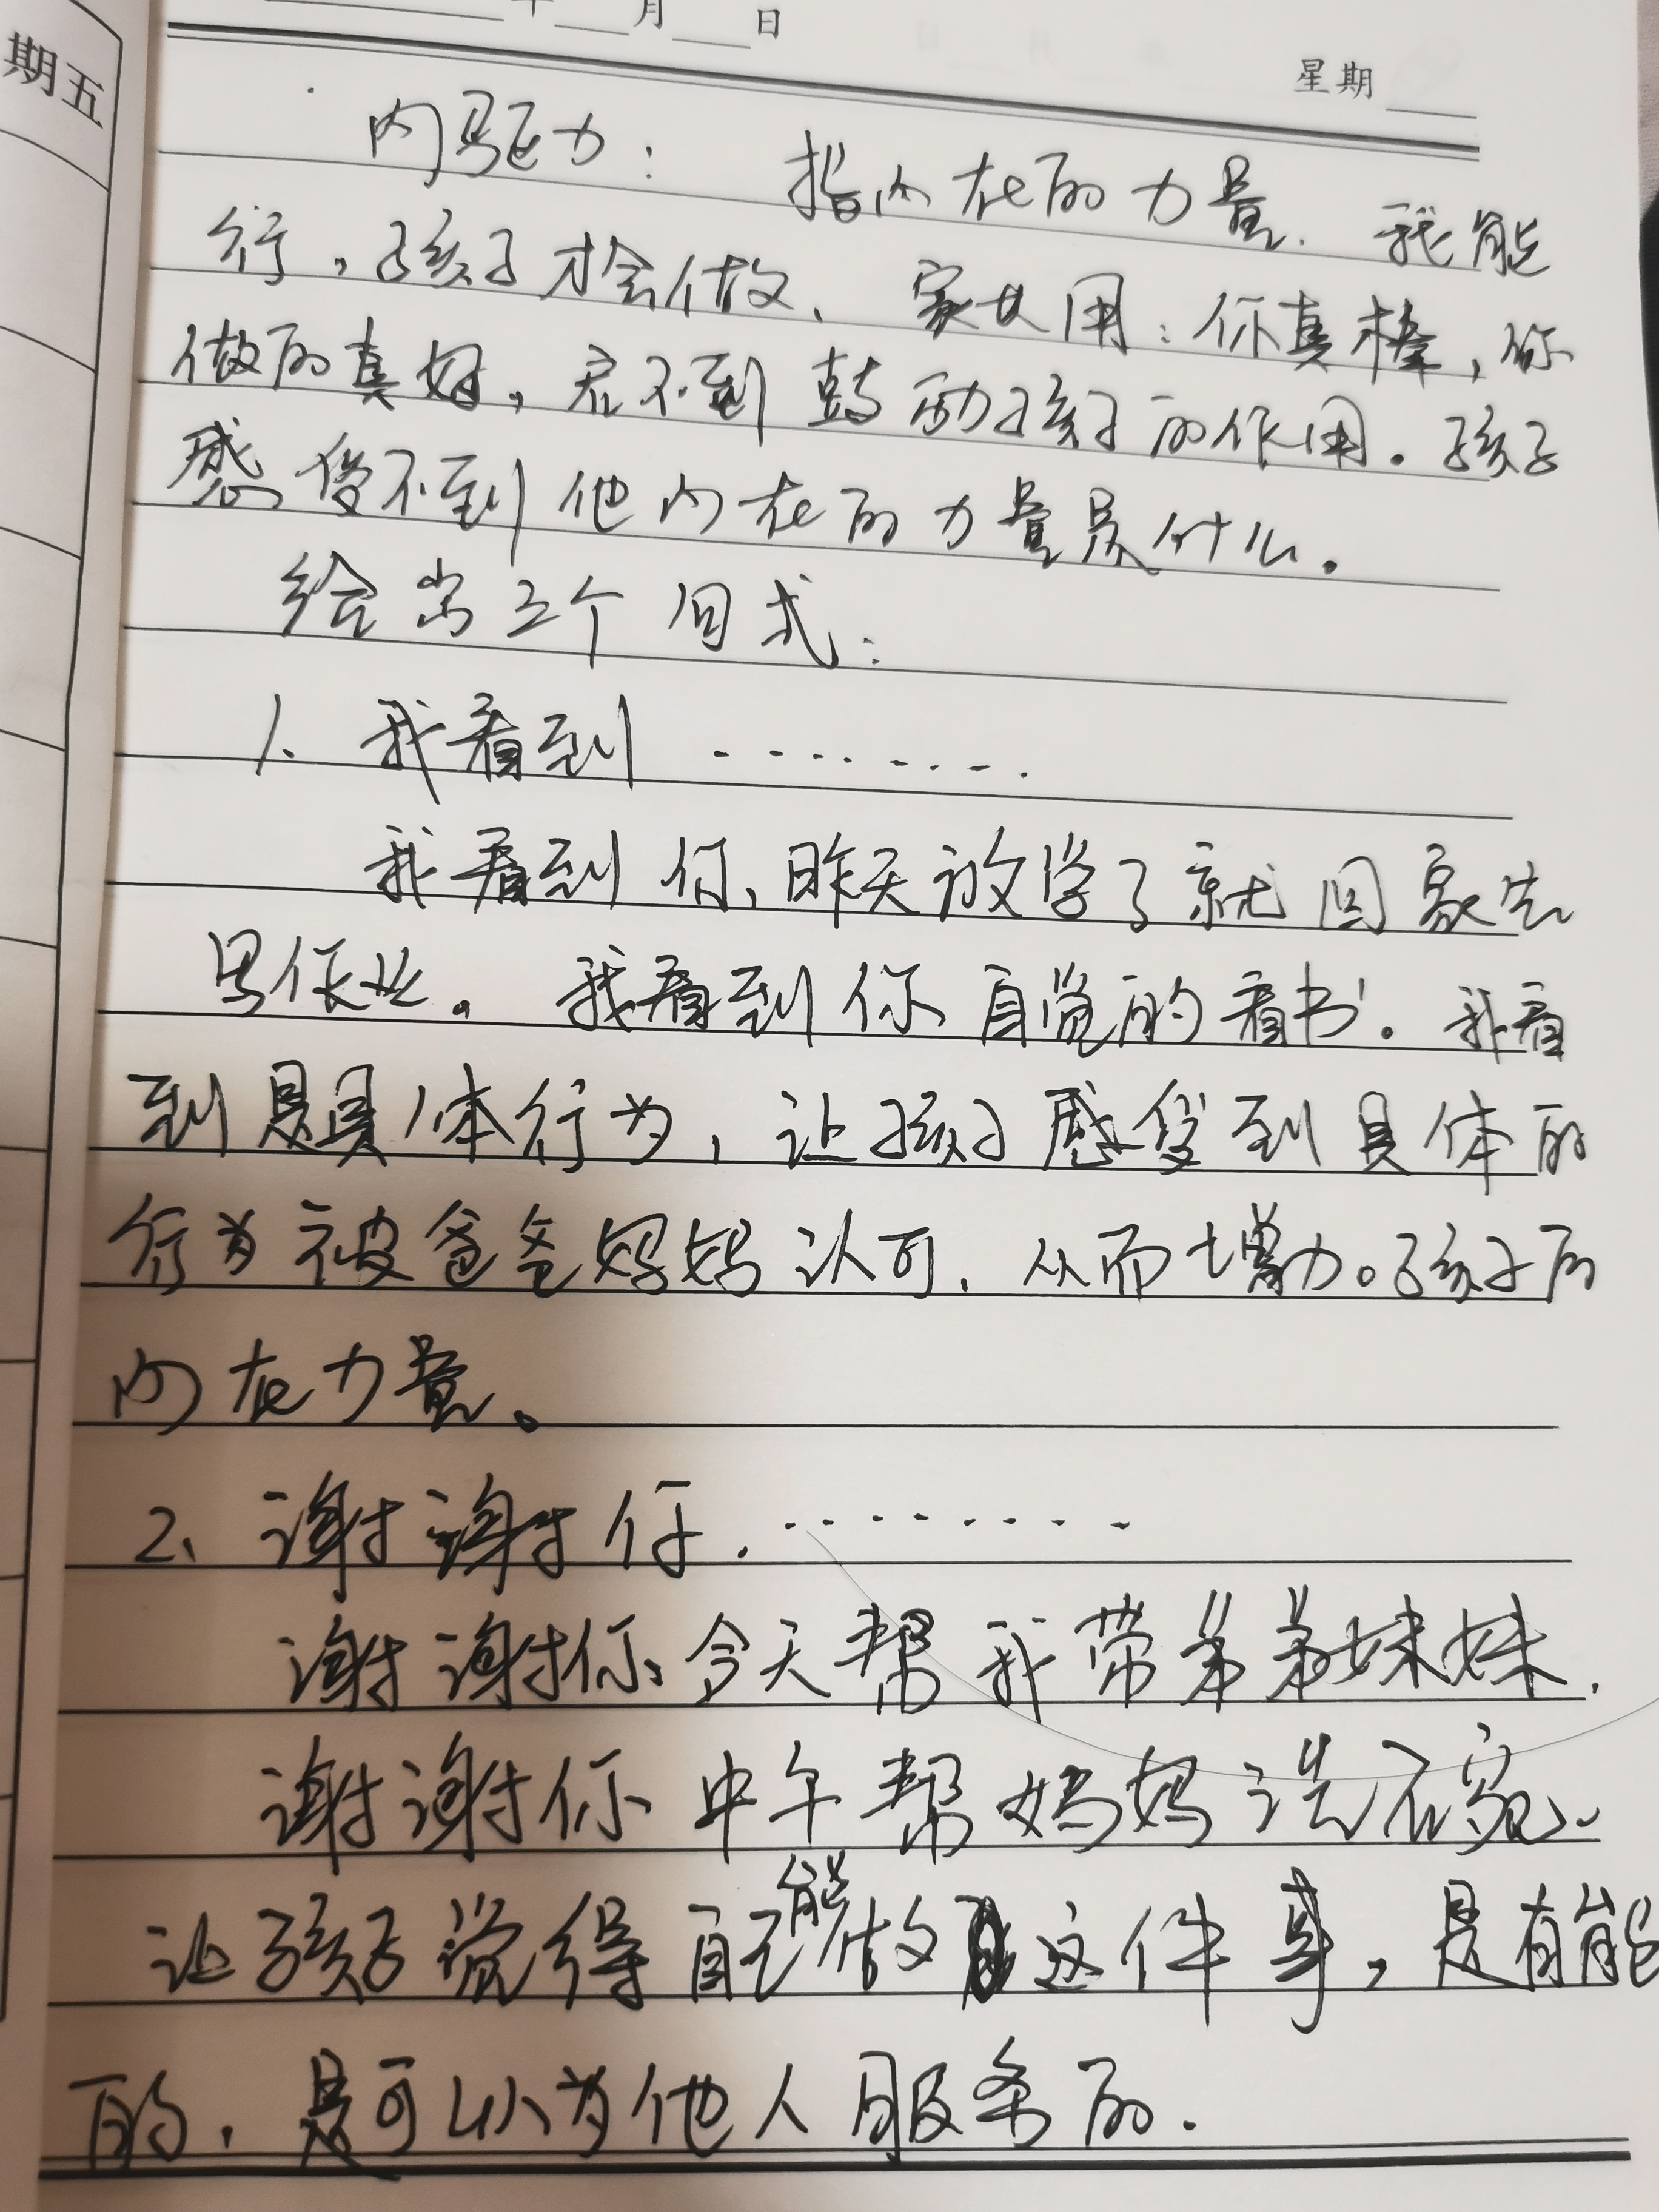 期五
年 月 日
星期
内驱力： 指内在的力量. 我能
行，孩子才会做、家长用：你真棒，你
做的真好，启不到鼓励孩子的作用。孩子
感受不到他内在的力量是什么。
给出三个句式：
1. 我看到………
我看到你、昨天放学了就回家先
写作业。我看到你自觉的看书。我看
到是具体行为，让孩子感受到具体的
行为被爸爸妈妈认可，从而增加。孩子的
内在力量。
2、谢谢你………
谢谢你今天帮我带弟弟妹妹.
谢谢你中午帮妈妈洗衣
让孩子觉得自己能做这件事，是有能
的，是可以为他人服务的.